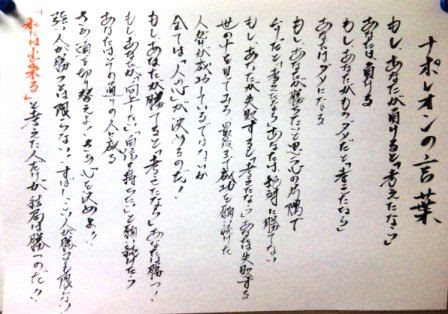 ナポレオンの言葉
もし、あなたが負けると「考えたなら」
あなたは、負ける
もし、あなたがもうダメだと「考えたなら」
あなたはダメになる
もし、あなたが勝ちたいと思う心の片隅で
ムリだと「考えたなら」あなたは絶対に勝てない
もし、あなたが失敗すると「考えたなら」あなたは失敗する
世の中を見てみろ、最後まで成功を願い続けた
人だけが成功しているではないか
全ては「人の心」が決めるのだ!
もし、あなたが勝てると「考えたなら」あなたは勝つ!
もし、あなたが「向上したい」「自信を持ちたい」と願い続けたら
あなたは、その通りの人に成る
さあ頭を切り替えよ!さあ心を決めよ!!
強い人が勝つとは限らない!すばしこい人が勝つとも限らない!
「私には出来る」と考えた人だけが結局は勝つのだ!!